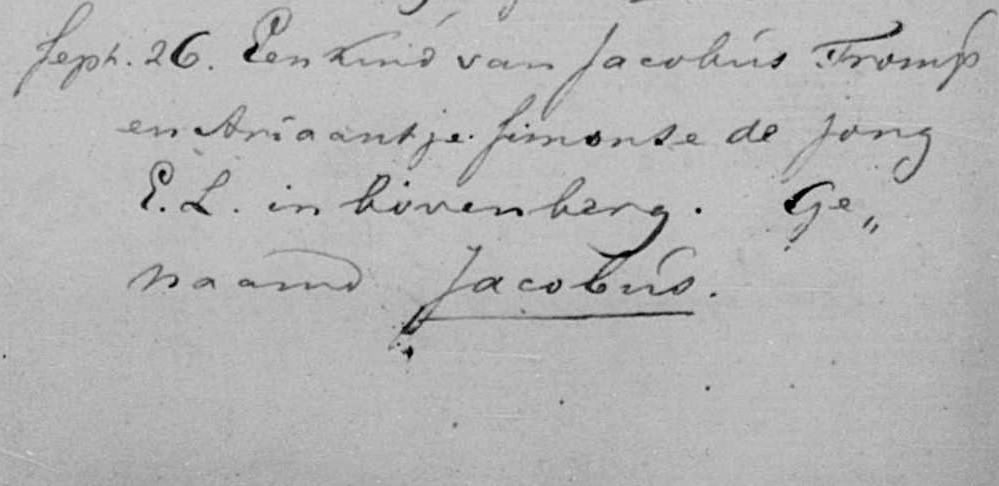 Sept. 26. Een kind van Jacobus Tromp
en Ariaantje Simonse de Jong
E.L. in bovenberg. Ge„
naamd Jacobus.